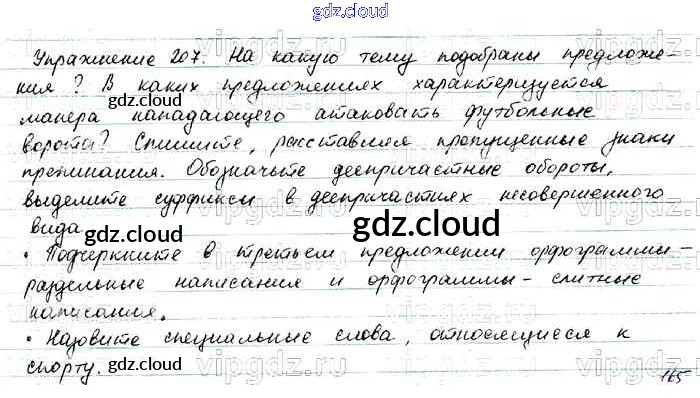 gdz.cloud
Упражнение 207. На какую тему подобраны предложе-
ния? В каких предложениях характеризуется
gdz.cloud
манера нападающего атаковать футбольные
ворота? Спишите, расставляя пропущенные знаки
препинания. Обозначьте деепричастные обороты,
выделите суффиксы в деепричастиях несовершенного
вида
gdz.cloud gdz.cloud gdz.cloud
• Подчеркните в третьем предложении орфограммы -
раздельные написания и орфограммы - слитные
написания.
• Назовите специальные слова, относящиеся к
спорту. gdz.cloud gdz.cloud
165